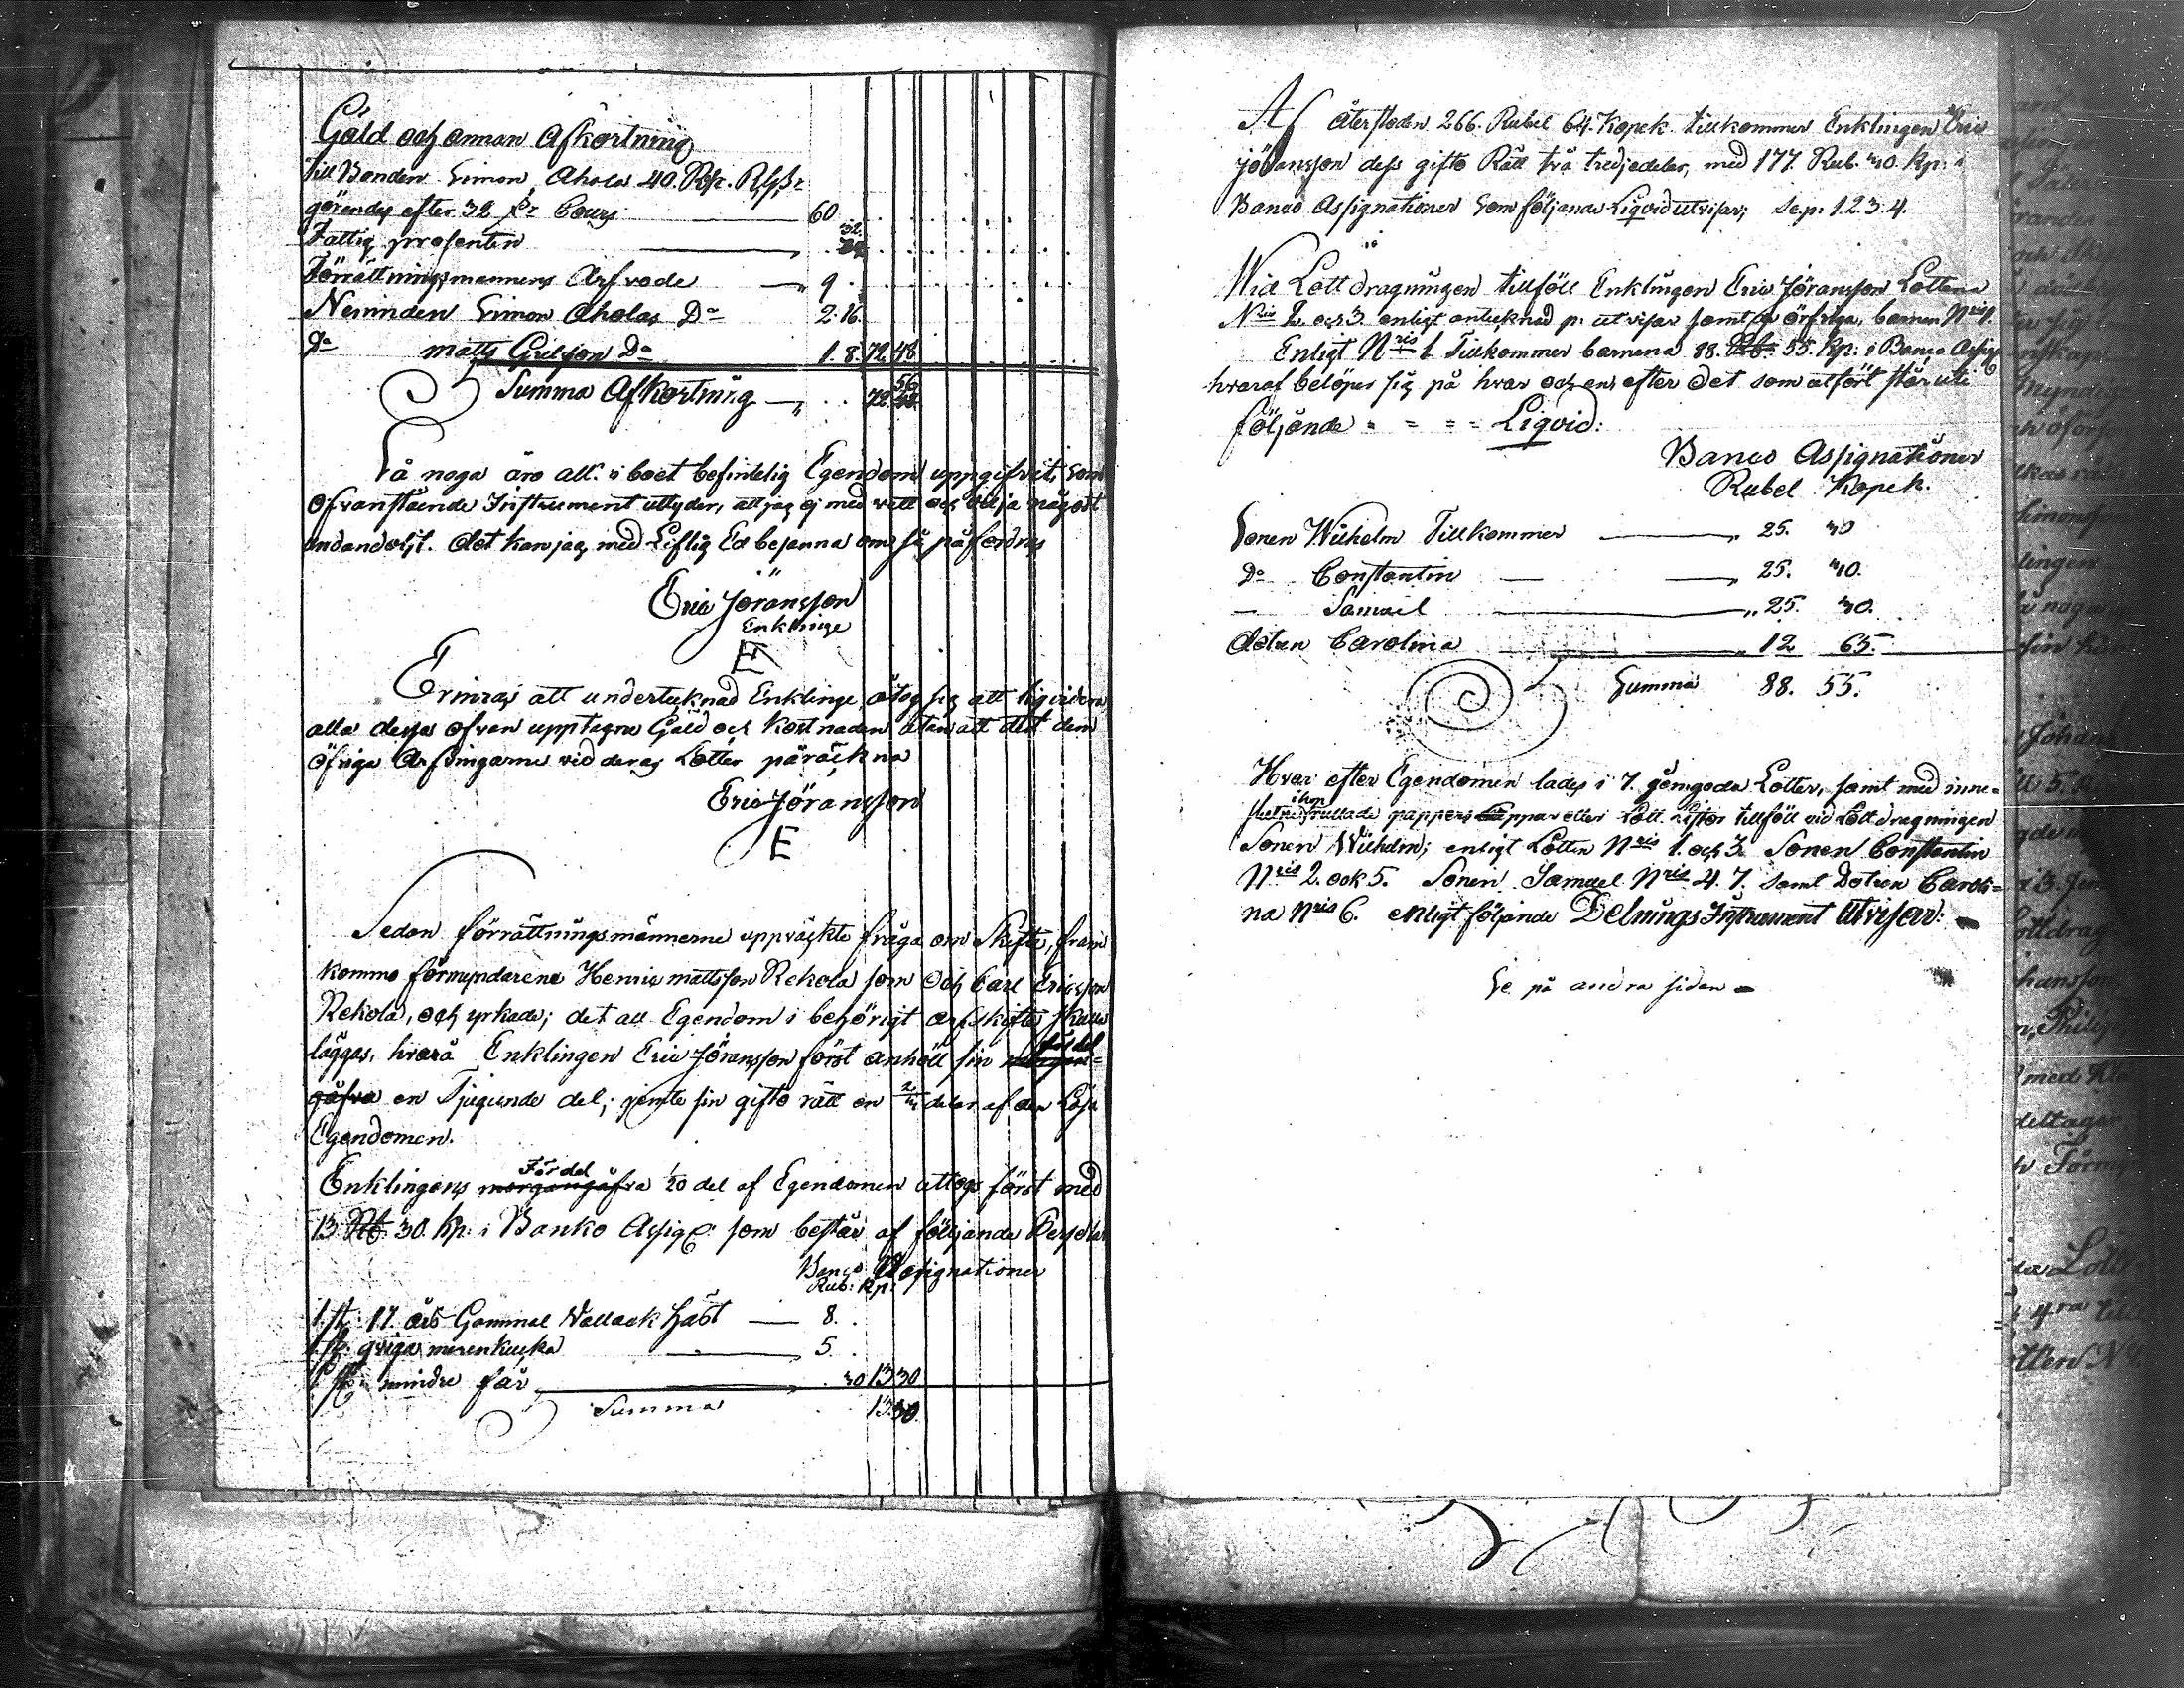 Gäld och annan Afkortning
Till Bonden Simon Ahola 40. Rp. Rgs
görendes efter 32 Cours 60
Fattig procenten 32
Förrättningsmannens Arfvode 9
Nemnden Simon Aholas Do 2. 16.
Do matts Do 1. 8. 72. 48
Summa Afkortning 72. 56
Så noga äro all i boet befintelig Egendom uppgifvit, som
Ofvanstående Instrument utlyder, att jag ej med vett och vilja något
undandolgt. det kan jag med Liflig Ed besanna om så påfordras
Eric Jöransson
Enklinge
E
Erinras att undertecknad Enklinge åtog sig att liqvidera
alla dessa ofvan upptagna Gäld och Kostnaden utan att det dem
öfriga Arfvingarne vid deras Lotter påräckna
Eric Jöransson
E
Sedan förrättningsmännerne uppväckte fråga om Skifte, fram
kommo förmyndarena Henric mattsson Rekola som Och Carl Ericsson
Rekola, och yrkade; det all Egendom i behörigt arfskifte skulle
läggas, hvarå Enklingen Eric Jöransson först anhöll sin fördel
en Tjugunde del, jemte sin gifto rätt en 2/3 delar af den Lösa
Egendomen.
Enklingens Fördel 1/20 del af Egendomen uttogs först med
13 Rb. 30. kp: i Banko Assig: som består af följande Persedlar
Banco Assignationer
Rub: Kp:
1. st. 17. års Gammal Vallack häst 8.
1. st. qviga 5.
1. st. mindre får 30 13 30
Summa 13. 30
Af återstoden 266. Rubel 64. Kopek. tillkommer Enklingen Eric
Jöransson dess gifto Rätt två tredjedelar, med 177. Rub. 40. kp: i
Banco Assignationer som följande Liqvid utvisar; Se p. 1. 2. 3. 4.
Wid Lott dragningen tillföll Enklingen Eric Jöransson Lotterna
Nris 2. och 3. enligt antecknad p. utvisar samt de öfriga, barnen Nris 1.
Enligt Nris 1 Tillkommer barnena 88. Rub. 55. Kp: i Banco Assig
hvaraf belöper sig på hvar och en, efter det som utfört står uti
följande = = = = Liqvid:
Banco Assignationer
Rubel Kopek.
Sonen Wilhelm Tillkommer 25. 30
Do Constantin 25. 30.
— Samuel 25. 30.
dotren Carolina 12 65.
Summa 88. 55.
Hvar efter Egendomen lades i 7. jämgoda Lotter, samt med inne-
ihop rullade pappers lappar eller Lott sistor tillföll vid Lottdragningen
Sonen Wilhelm; enligt Lotten Nris 1. och 3. Sonen Constantin
Nris 2. ock 5. Sonen Samuel Nris 4. 7. samt Dotren Caroli-
na Nris 6. enligt följande Delnings Instrument utvisar:
Se på andra sidan